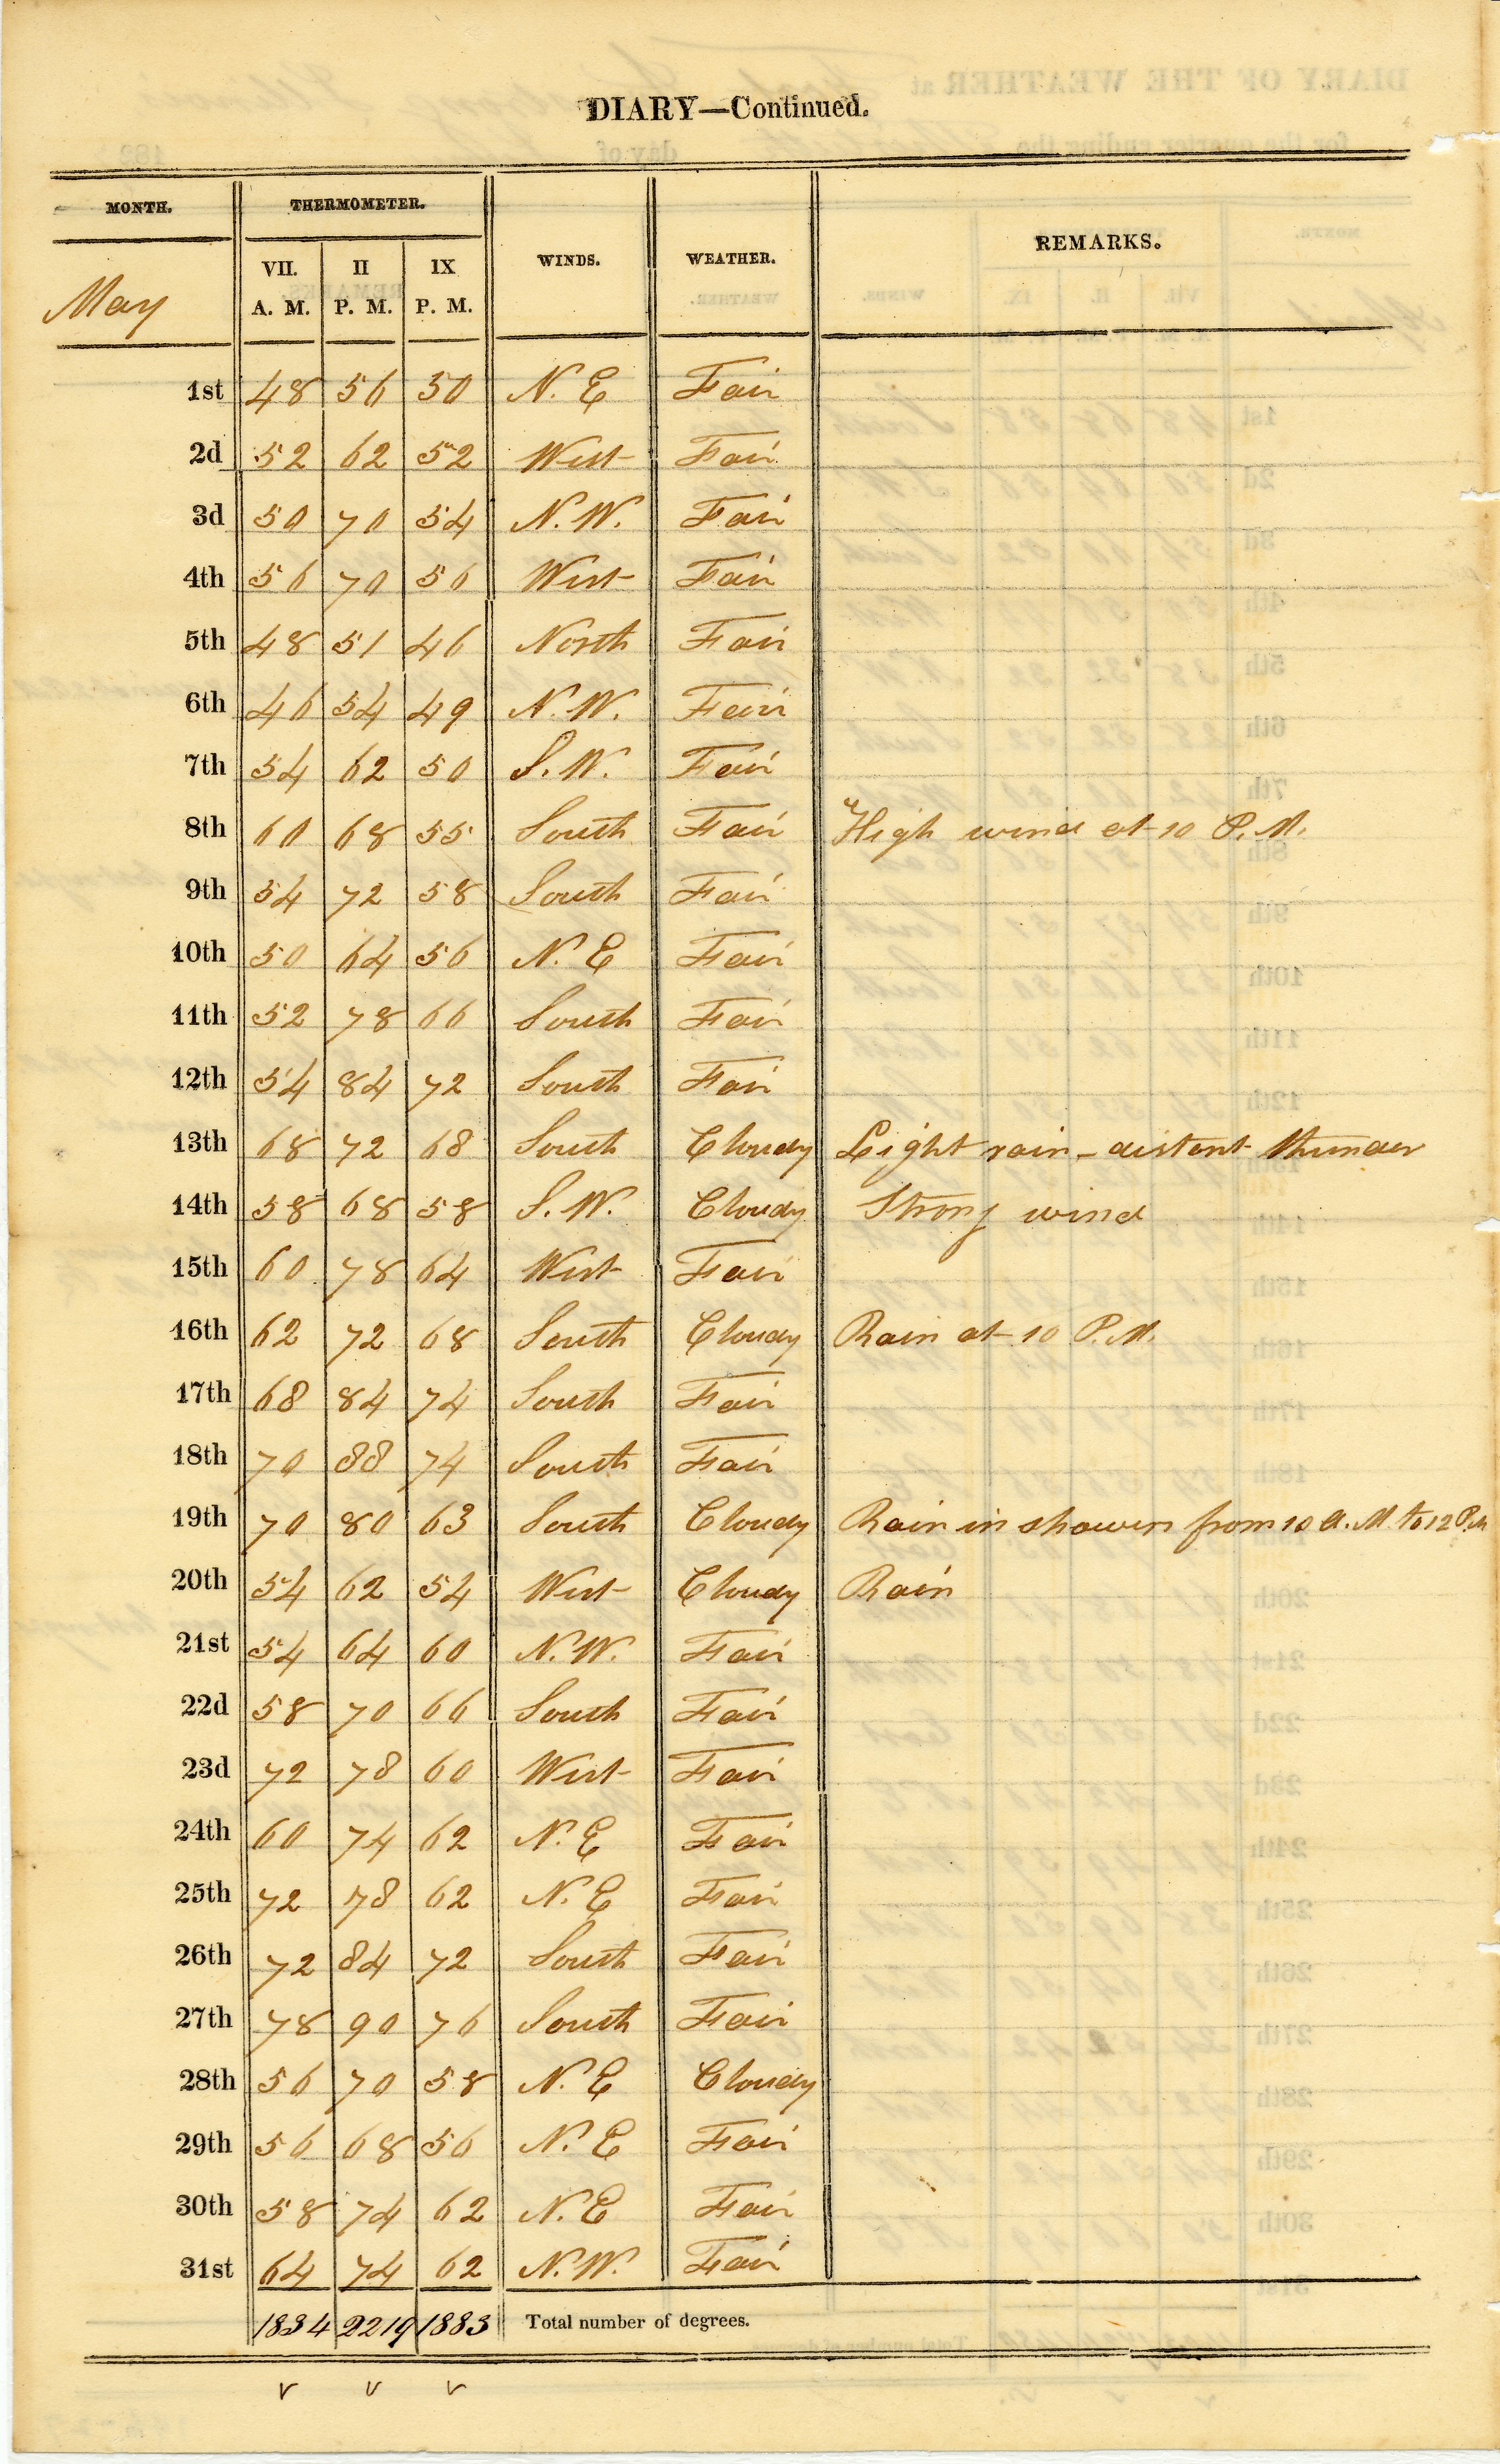 DIARY—Continued.
MONTH. THERMOMETER. WINDS. WEATHER. REMARKS.
VII. A. M. II P. M. IX P. M.
May
1st 48 56 50 N. E Fair
2d 52 62 52 West Fair
3d 50 70 54 N. W. Fair
4th 56 70 56 West Fair
5th 48 51 46 North Fair
6th 46 54 49 N. W. Fair
7th 54 62 50 S. W. Fair
8th 60 68 55 South Fair High wind at 10 P. M.
9th 54 72 58 South Fair
10th 50 64 56 N. E Fair
11th 52 78 66 South Fair
12th 54 84 72 South Fair
13th 68 72 68 South Cloudy Light rain - distant thunder
14th 58 68 58 S. W. Cloudy Strong wind
15th 60 78 64 West Fair
16th 62 72 68 South Cloudy Rain at 10 P. M.
17th 68 84 74 South Fair
18th 70 88 74 South Fair
19th 70 80 63 South Cloudy Rain in showers from 10 A. M. to 12 P. M
20th 54 62 54 West Cloudy Rain
21st 54 64 60 N. W. Fair
22d 58 70 66 South Fair
23d 72 78 60 West Fair
24th 60 74 62 N. E Fair
25th 72 78 62 N. E Fair
26th 72 84 72 South Fair
27th 78 90 76 South Fair
28th 56 70 58 N. E Cloudy
29th 56 68 56 N. E Fair
30th 58 74 62 N. E Fair
31st 64 74 62 N. W. Fair
1834 2219 1883 Total number of degrees.